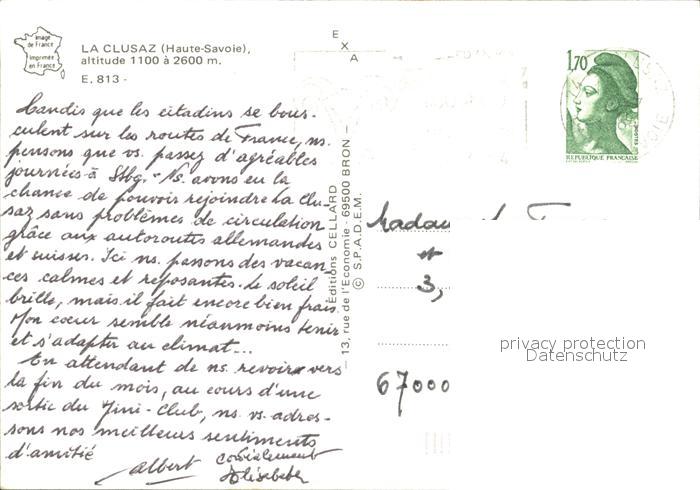 Image
de France
Imprimée
en France
LA CLUSAZ (Haute-Savoie),
altitude 1100 à 2600 m.
E. 813 -
E
X
A
1,70
REPUBLIQUE FRANÇAISE
Tandis que les citadins se bous-
culent sur les routes de France, ns.
pensons que vs. passez d'agréables
journées à Stbg. - Ns. avons eu la
chance de pouvoir rejoindre La Clu-
saz sans problèmes de circulation
grâce aux autoroutes allemandes
et suisses. Ici ns. passons des vacan-
ces calmes et reposantes. Le soleil
brille, mais il fait encore bien frais.
Mon coeur semble néanmoins tenir
et s'adapter au climat...
En attendant de ns. revoir vers
la fin du mois, au cours d'une
sortie du Mini-Club, ns. vs. adres-
sons nos meilleurs sentiments
d'amitié
Albert
cordialement
Elisabeth
Editions CELLARD
13, rue de l'Economie - 69500 BRON -
© S.P.A.D.E.M.
Madam
et
3,
67000
privacy protection
Datenschutz